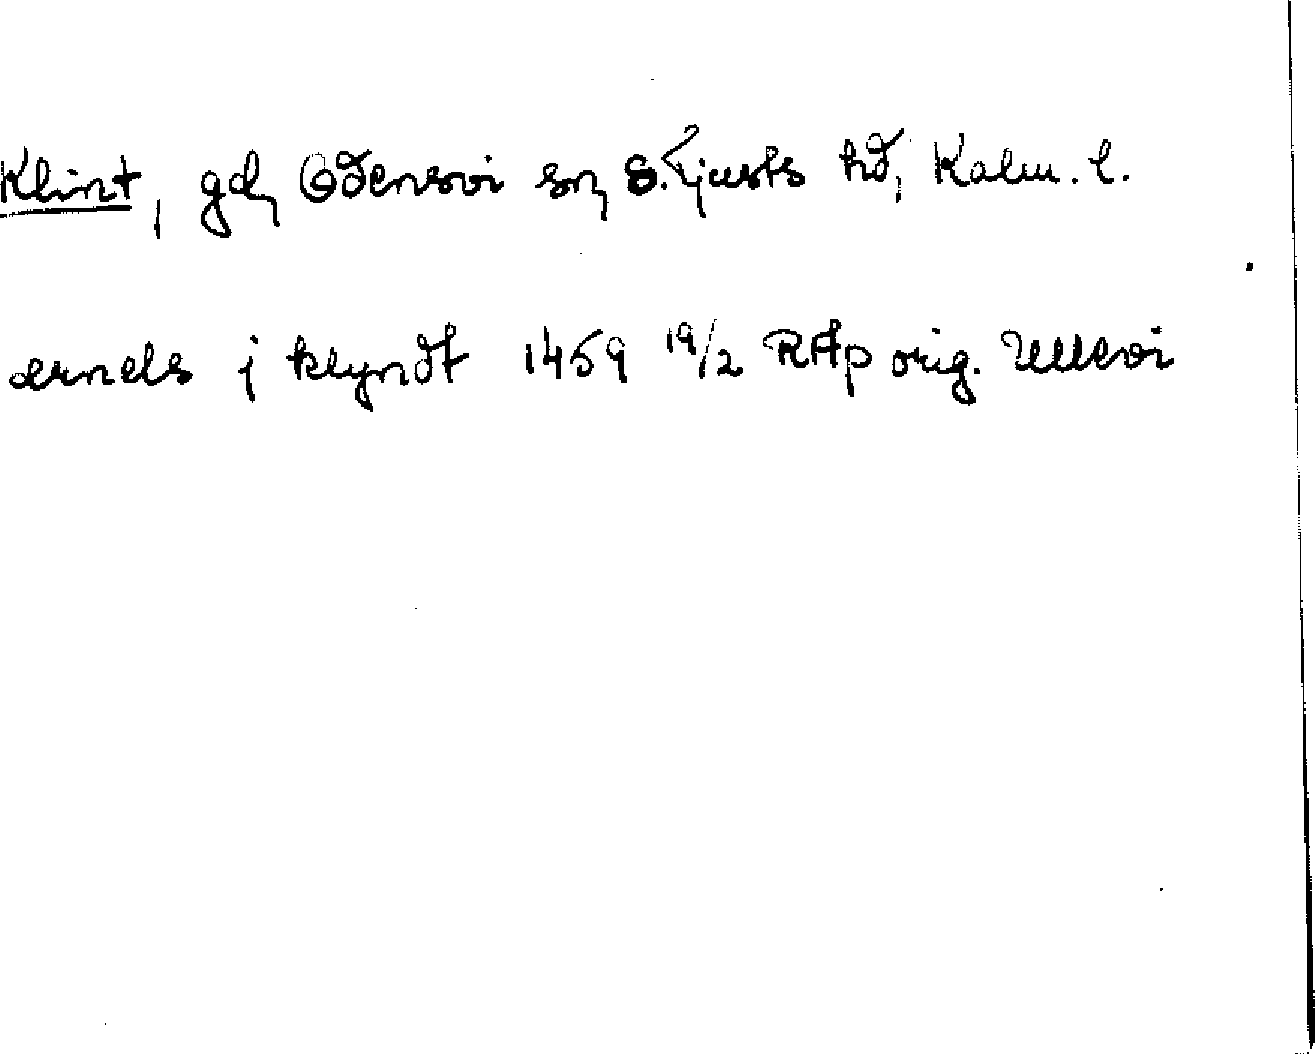 Klint, gd, Odensvi sn, S. Tjusts hd, Kalm. l.
ærnels j klyndt 1459 19/2 RAp orig. Ullevi